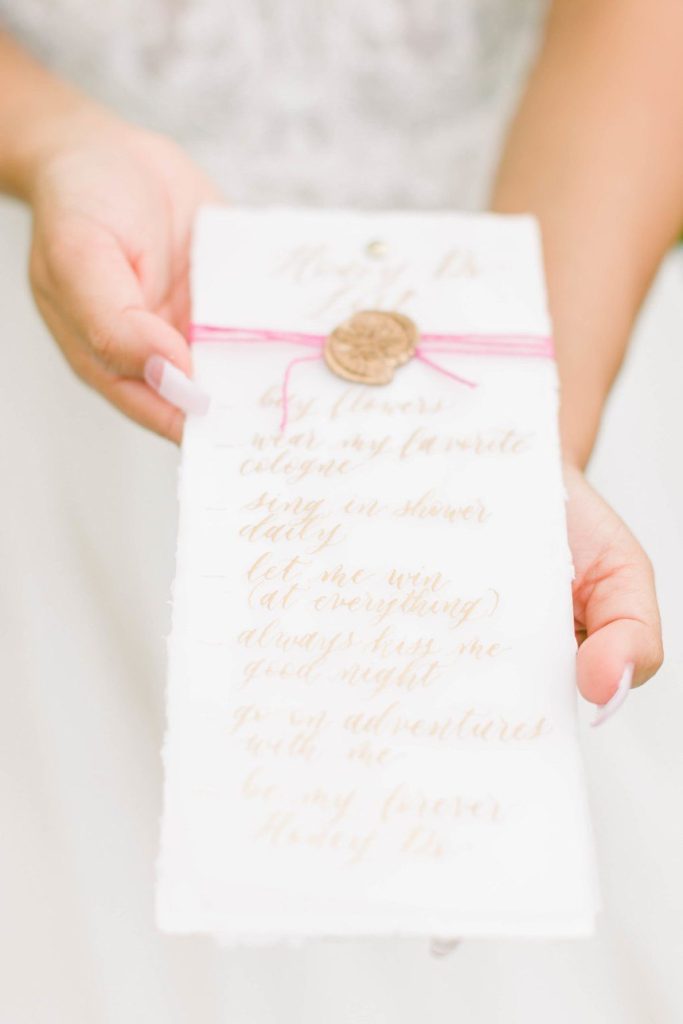 Honey Do
List
buy flowers
wear my favorite
cologne
sing in shower
daily
let me win
(at everything)
always kiss me
good night
go on adventures
with me
be my forever
Honey Do